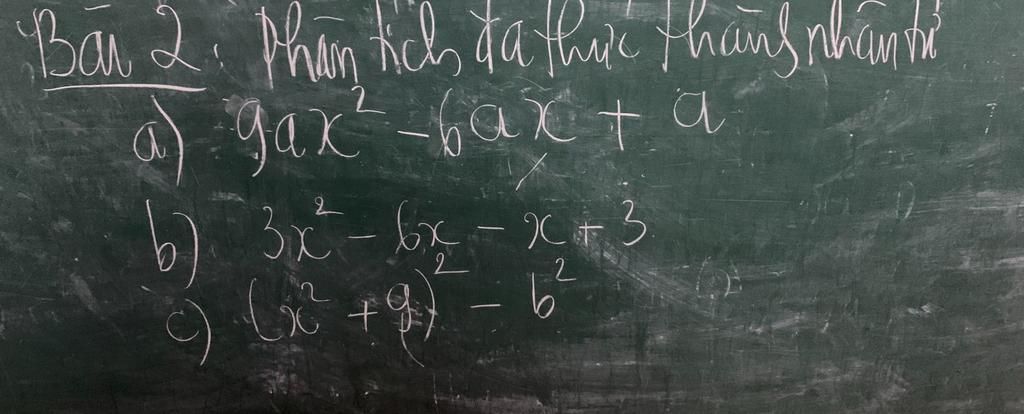 Bài 2: Phân tích đa thức thành nhân tử
a) 9ax² - 6ax + a
b) 3x² - 6x - x + 3
c) (x² + 9)² - b²